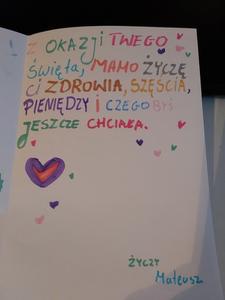 Z OKAZJI TWEGO
ŚWIĘTA, MAMO ŻYCZĘ
CI ZDROWIA, SZĘŚCIA,
PIENIĘDZY I CZEGO BYŚ
JESZCZE CHCIAŁA.
ŻYCZY
Mateusz